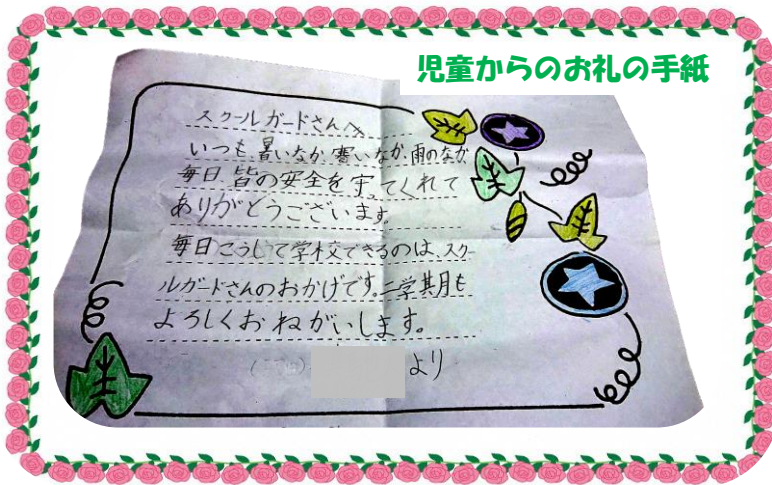 児童からのお礼の手紙
スクールガードさんへ
いつも、暑いなか、寒いなか、雨のなか
毎日、皆の安全を守ってくれて
ありがとうございます。
毎日こうして学校できるのは、スクー
ルガードさんのおかげです。二学期も
よろしくおねがいします。
より